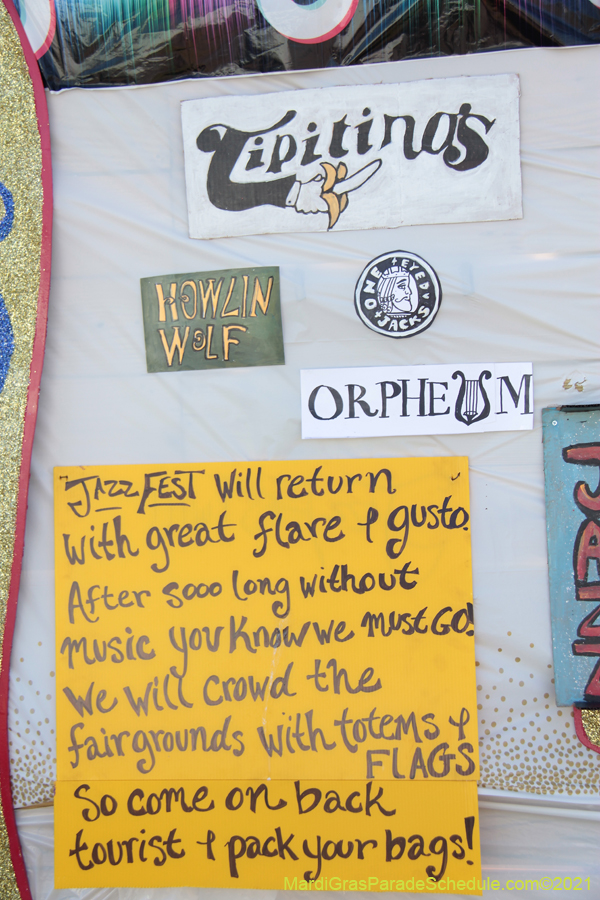 Tipitina's
HOWLIN
WOLF
ONE EYED
JACKS
ORPHEUM
JAZZ
JAZZ FEST will return
with great flare & gusto.
After sooo long without
music you know we must GO!
We will crowd the
fairgrounds with totems &
FLAGS
So come on back
tourist & pack your bags!
MardiGrasParadeSchedule.com©2021